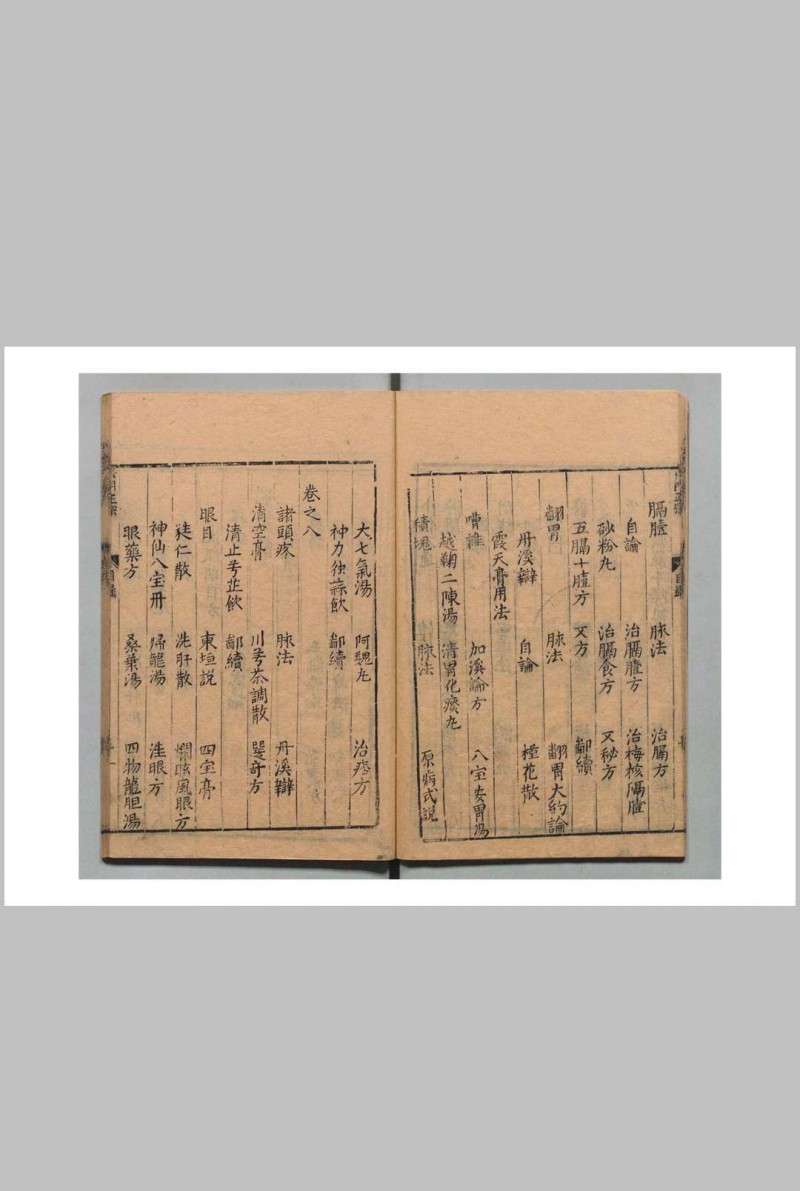 膈噎 脉法 治膈方
自論 治膈噎方 治梅核隔噎
砂粉丸 治膈食方 又秘方
五膈十噎方 又方 鄙續
翻胃 脉法 翻胃大約論
丹溪辯 自論 椿花散
霞天膏用法
嘈雜 加溪論方 八宝安胃湯
越鞠二陳湯 清胃化痰丸
積塊 脉法 原病式説
大七氣湯 阿魏丸 治痞方
神力独蒜飲 鄙續
卷之八
諸頭疼 脉法 丹溪辯
清空膏 川芎茶調散 選奇方
清上芎芷飲 鄙續
眼目 東垣説 四宝膏
蕤仁散 洗肝散 爛眩風眼方
神仙八宝丹 歸龍湯 洼眼方
眼藥方 桑葉湯 四物龍胆湯
目録